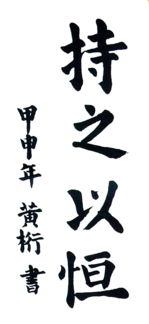 持之以恒
甲申年 黄桁書